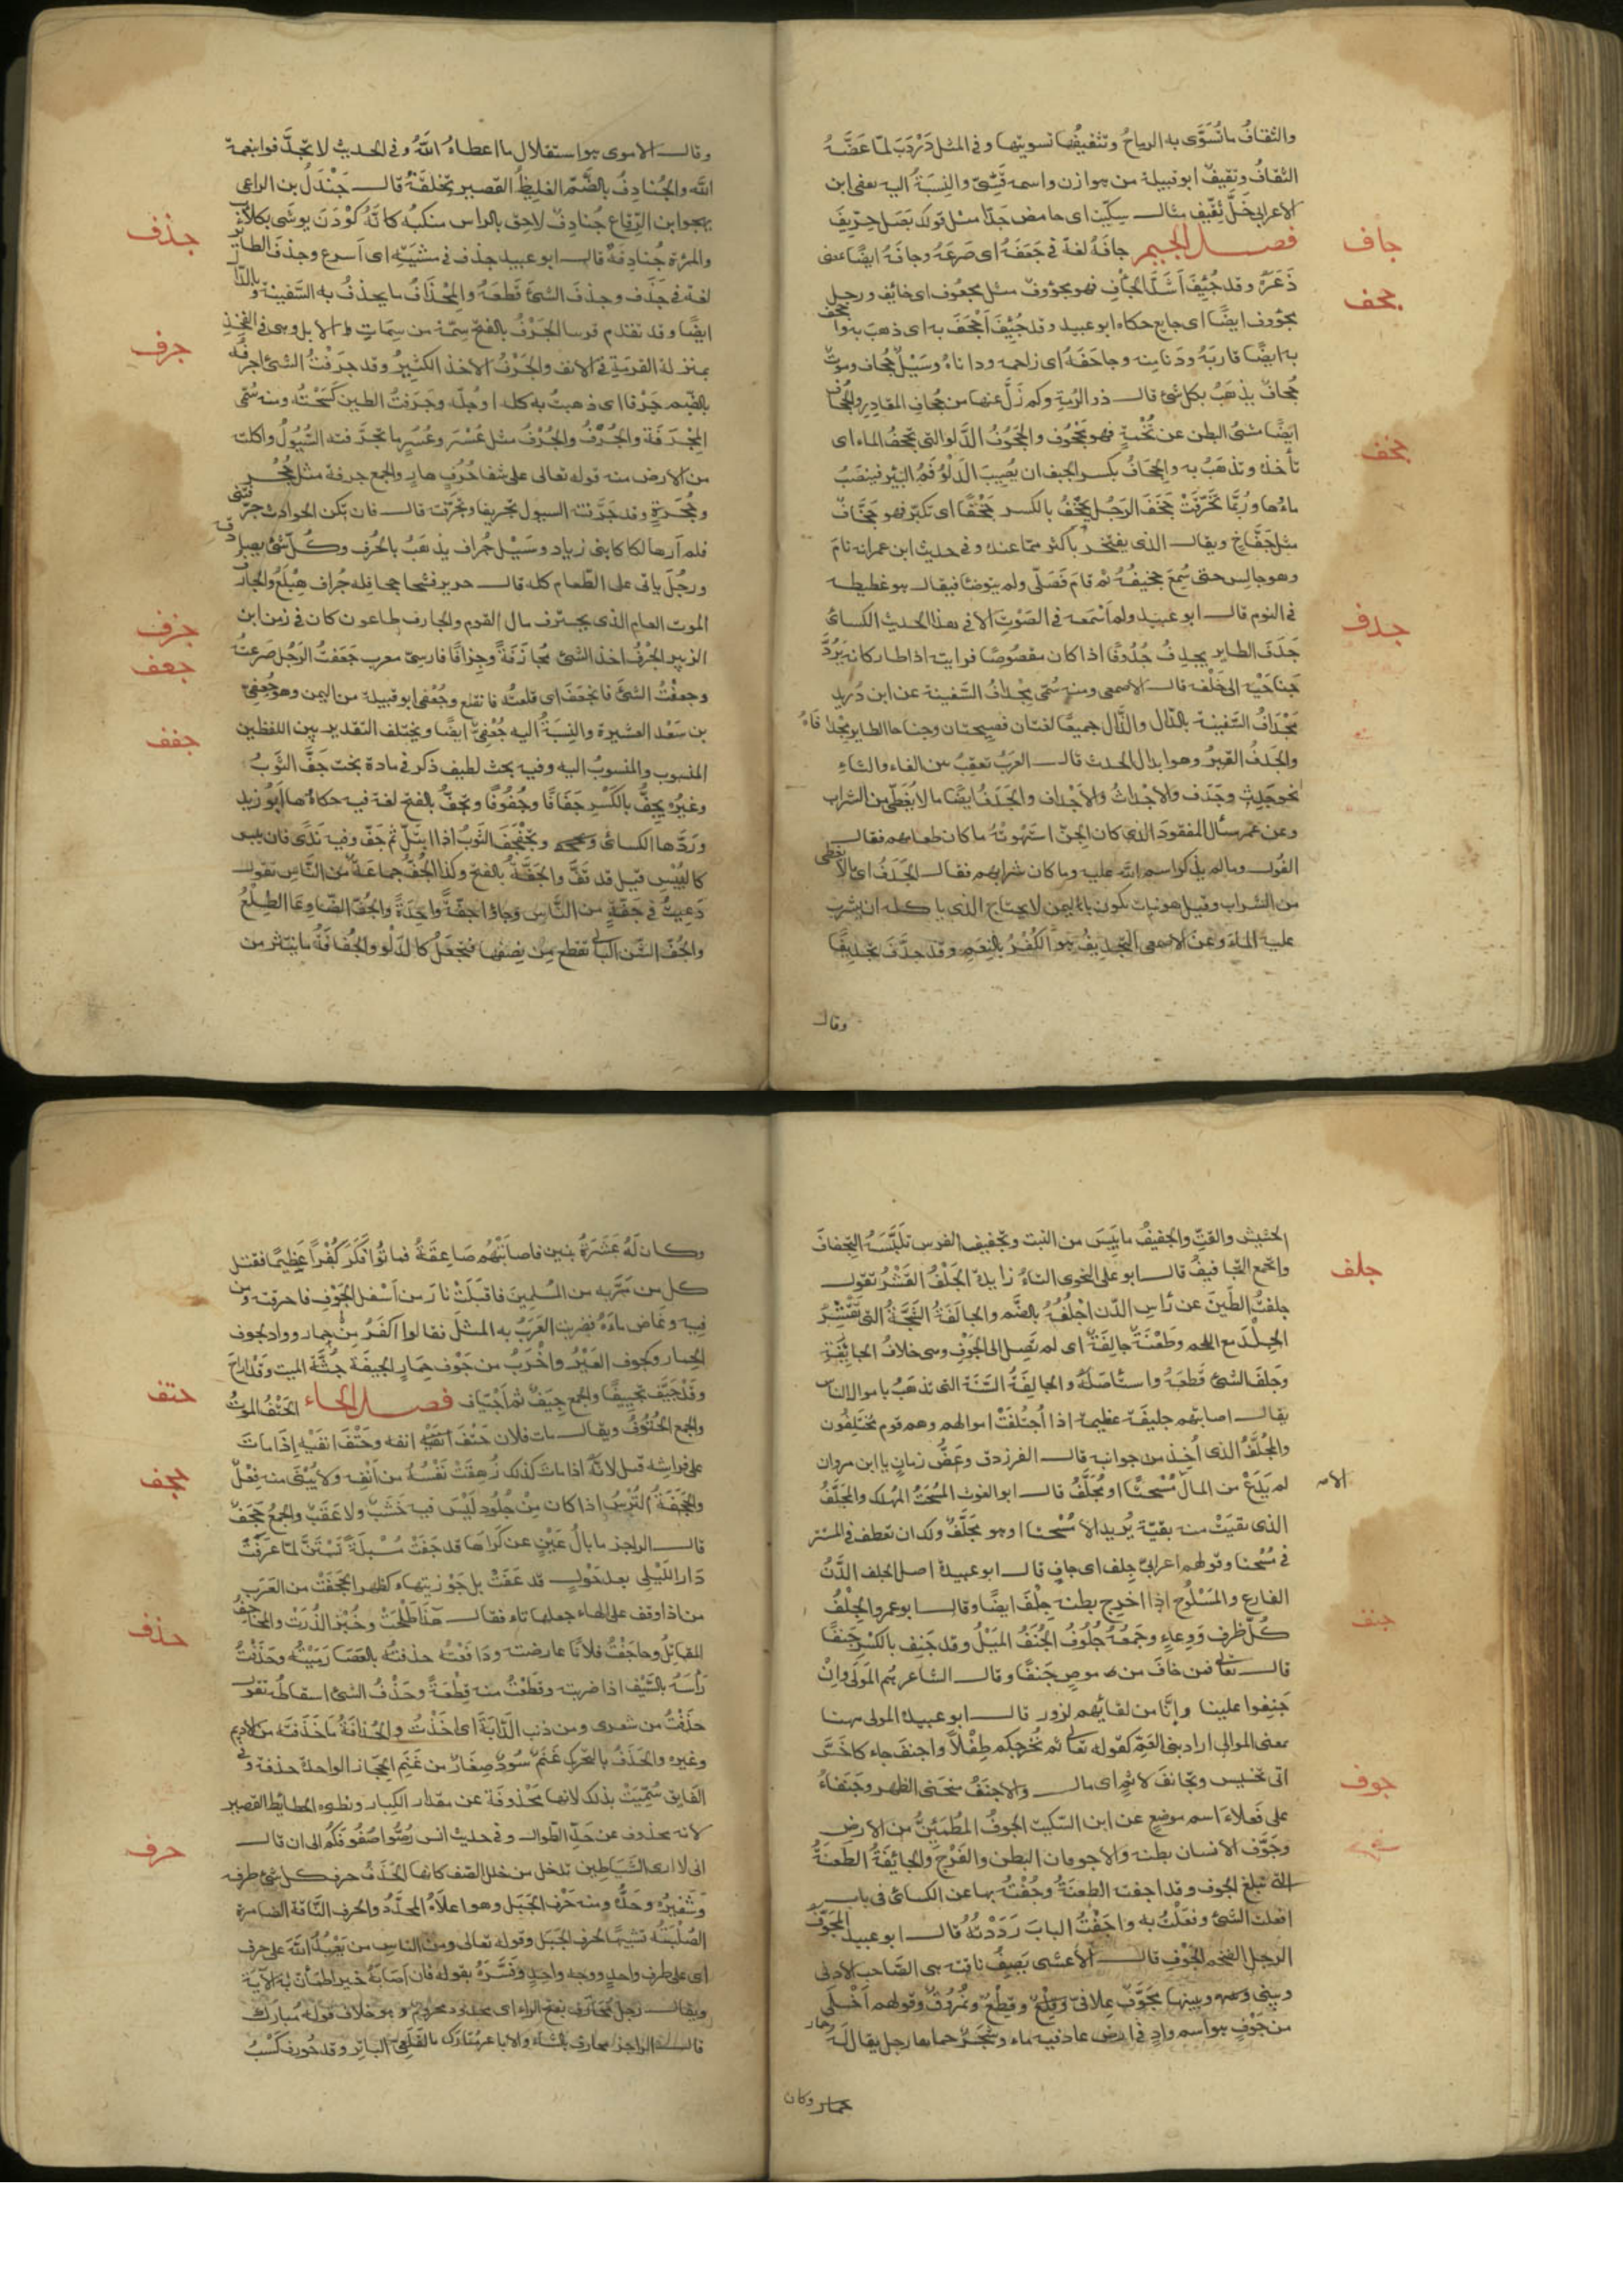 والثقافُ ماتُسَوَّى به الرماحُ وتثقيفُها تسويتها وفى المثل دَرْدَبَ لمّا عَضَّهُ
الثقافُ وثقيفٌ ابو قبيلة من هوازن واسمه قَسِىٌّ والنِسبَةُ اليه ثقفى ابن
الاعرابى خَلٌّ ثِقّيف مثال سِكّيت اى حامض جَدًّا مثل قولك بَصَل حِرّيف
جاف
فصل الجيم جافَهُ لغة فى جَعَفَهُ اى صَرعَهُ وجافَهُ ايضًا بمعنى
ذَعَرَهُ وقد جُئِفَ اَشَدَّ الجَأفِ فهو مجؤوف مثل مجعوف اى خائف ورجل
جحف
مجؤوف ايضًا اى جايع حكاه ابو عبيد وقد جُئِفَ اَجْحَفَ به اى ذهبَ به
به ايضًا قاربَهُ ودَنا منه وجاحَفَهُ اى زاحمه وداناهُ وسَيْلٌ جُحاف وموتٌ
جُحافٌ يذهَبُ بكل شئ قال ذو الرُمّة وكم زَلَّ عنها من جُحافِ المقادِرِ والجُحاف
ايضًا مشىُ البطن عن تُخْمةٍ فهو مَجْحُوف والجَحُوفُ الدَّلو التى تجحفُ الماء اى
جخف
تأخذه وتذهَبُ به والجِحافُ بكسر الجيم ان يُصِيبَ الدَلْوُ فَمَ البَيْرِ فينصَبُّ
ماؤها ورُبَّما تخرّقَتْ جَخَفَ الرجُل يَجْخِفُ بالكسر جَخْفًا اى تكبّر فهو جَخّافٌ
مثل جَفّاخ ويقال الذى يفتخر بأكثر ممّا عنده وفى حديث ابن عمر انه نامَ
وهو جالس حتى سُمِعَ جخيفُهُ ثم قامَ فصَلّى ولم يتوضأ فيقال هو غطيطه
فى النوم قال ابو عبيد ولم اَسْمَعه فى الصَوْتِ الا فى هذا الحديث الكسائى
جدف
جَدَفَ الطاير يجدِفُ جُدُوفًا اذا كان مقصُوصًا فرايته اذا طار كانه يَرُدُّ
جَناحَيْه الى خَلْفه قال الاصمعى ومنه سُمّى مِجْدافُ السَّفينة عن ابن دُريد
مجْدافُ السَّفينة بالدّال والذّال جميعًا لغتان فصيحتان وجناحا الطاير مِجْدافاهُ
والجَدَفُ القبرُ وهو ابدال الجدث قال العرَبُ تعقِبُ بين الفاء والثاء
نحو جَدَثٍ وجَدَف والاَجْداث والاَجْداف والجَدَفُ ايضًا ما لا يُغَطّى من الشراب
وعن عمر سأل المفقود الذى كان الجنّ استَهْوَتْهُ ما كان طعامهم فقال
الفُول وما لم يذكر اسم الله عليه وما كان شرابهم فقال الجَدَفُ اى ما لا يُغطى
من الشراب وقيل هو نبات يكون باليمن لا يحتاج الذى ياكله ان يشرب
عليه الماءَ وعن الاصمعى التجديفُ هو الكُفْرُ بالنِعَمِ وقد جدَّفَ تجديفًا
وقال
وقال الاموى هو استقلال ما اعطاه اللّهُ وفى الحديث لا تجدِّفوا بنعمة
اللّه والجُنادِفُ بالضّمّ الغليظُ القصير الخلقة قال جَنْدَل بن الراعى
يهجو ابن الرّقاع جُنادِفٌ لاحِق بالراس منكبُه كانَّهُ كَوْدَن يوشَى بكلاّب
جذف
والمرءة جُنادِفةٌ قال ابو عبيد جذف فى مشيَتِه اى اَسرع وجذف الطائر
لغة فى جدَف وجذف الشئَ قطعَهُ والمِجْذافُ ما يجذفُ به السَّفينة وبالدال
جرف
ايضًا وقد تقدم قوسا الجَرْفُ بالفتح سِمَة من سِماتِ الابل وهى فى الفخذِ
بمنزلة القرمَةِ فى الانف والجَرْفُ الاخذ الكثيرُ وقد جرَفْتُ الشئَ اجرُفُه
بالضم جَرْفا اى ذهبتُ به كله او جُلّه وجَرَفتُ الطين كَسَحْتُه ومنه سُمّى
المِجْرَفة والجُرُفُ والجُرْفُ مثل عُسْر وعُسُر ما تجرّفته السُّيُولُ واكلته
من الارض منه قوله تعالى على شفا جُرُفٍ هارٍ والجمع جِرفة مثل جُحْر
وجُحَرَةٍ وقد جرّفته السيول تجريفا وتجرّفته قال فان تكن الحوادث جرّفتنى
فلم اَر هالكا كابنى زياد وسَيْل جُراف يذهَبُ بالجُرف وكُلّ شئ يصير
ورجُل ياتى على الطّعام كله قال جرير فشحا جحافله جُراف هِبْلَع والجارف
الموت العام الذى يجترف مال القوم والجارف طاعون كان فى زمن ابن
جزف
الزبير الجُزْفُ اخذ الشئ مُجازَفَةً وجِزافًا فارسىّ معرب جَعَفتُ الرجُل صَرعتُه
جعف
وجعفْتُ الشئَ فانجعَفَ اى قلعتُه فانقلع وجُعْفى ابو قبيلة من اليمن وهو جُعفى
بن سَعْد العشيرة والنِسبَةُ اليه جُعْفِىٌّ ايضًا ويختلف التقدير بين اللفظين
جفف
المنسوب والمنسوب اليه وفيه بحث لطيف ذكر فى مادة بخت جَفَّ الثَّوبُ
وغيرُه يجِفُّ بالكَسْرِ جَفَافًا وجُفُوفًا ويجَفُّ بالفتح لغة فيه حكاهُا ابُو زيد
ورَدَّها الكسائى وتَجَفْجَفَ الثَوبُ اذا ابتَلّ ثم جَفّ وفيه نَدًى فان يبس
كل اليُبْسِ قيل قد قَفّ والجَفَّةُ بالفتح وكذا الجُفُّ جماعَةٌ من النّاس تقول
دُعيتُ فى جَفّةٍ من النّاس وجاؤا جَفَّةً واحِدَةً والجُفّ ايضًا وِعَا الطَلْعُ
والجُفّ الشّن البالى تقطع مِن نِصْفها فتجعَلُ كالدّلو والجُفافَةُ ما ينتثر من
الحشيش والقتّ والجفيفُ ما يَبِسَ من النبت وتجفيف الفرس تَلبّسهُ التجفافَ
جلف
والجمع التجافيفُ قال ابو على النحوى التاءُ زايدة الجَلْفُ القَشْرُ تقول
جلفتُ الطّينَ عن رَأسِ الدّن اَجْلُفُهُ بالضَّم والجالفَةُ الشَجَّةُ التى تَقشِرُ
الجِلْدَ مع اللحم وطَعْنَةٌ جالِفَةٌ اى لم تصِل الى الجَوْفِ وهى خلافُ الجائِفة
وجَلفَ الشئَ قَطعَهُ واستأصَلَهُ والجالِفَةُ السّنَة التى تذهَبُ باموال الناس
يقال اصابتهم جليفَة عظيمة اذا اُجْتُلِفَتْ اموالهم وهم قوم مُجْتَلِفُون
والمُجَلَّفُ الذى اُخِذَ من جوانبه قال الفرزدق وعَضُّ زمانٍ يا ابن مروان
لم يَدَعْ من المال الا مُسْحَتًا او مُجَلَّفُ قال ابو الغوث المُسْحَتُ المُهلك والمجَلَّفُ
الذى بقيَتْ منه بقيّة يُريد الا مُسْحتا او هو مجَلَّفٌ
فى مُسْحتا وقولهم اعرابىٌّ جِلف اى جافٍ قال ابو عبيدة اصل الجلف الدَّنُّ
الفارغ والمَسْلُوخ اذا اخرج بطنه جِلْف ايضًا وقال ابو عمرو الجِلْفُ
جنف
كُلّ ظرفٍ ووِعاءٍ وجَمعُهُ جُلُوفُ الجَنَفُ المَيْلُ وقد جَنِف بالكسر جَنَفًا
قال تعالى فمن خافَ من مُوصٍ جَنفًا وقال الشاعر هُم المَولَى وانْ
جَنفوا علينا وإنّا من لقائهم لزور قال ابو عبيدة المولى ههنا
بمعنى الموالى اراد بنى العَمّ كقوله تعالى ثم نُخْرجكم طِفْلاً واجنفَ جاء
وتجانفَ لاثم اى مال والاَجنَفُ منحنى الظهر وجَنَفاءُ
جوف
على فَعلاءَ اسم موضع عن ابن السّكيت الجَوفُ المُطمَئِنُّ من الارض
وجَوْف الانسان بطنه والاجوفان البطن والفَرْج والجائِفَةُ الطعنةُ
التى تبلغ الجوف وقد اجفته الطعنَةَ وجُفْتُهُ بها عن الكسائى فى باب
افعلت الشئ وفعَلْتُ به واجَفْتُ البابَ رَدَدْتُهُ قال ابو عبيد المُجَوّفُ
الرجل الضخم الجَوْفِ قال الاَعشى يَصِفُ ناقته هى الصّاحِب الادنى
وبينى وبينها مُجَوّف عِلافىٌّ وقِطْعٌ ونُمرُقٌ وقولهم اَخلى
من جَوْفِ حمار هو اسم وادٍ فى ارض عاد فيه ماء وشجَرٌ حماها رجل يقال لَهُ
حمار وكان
وكان لَهُ عَشَرَةُ بنين فاصابَتْهُم صَاعِقَةٌ فماتُوا فكَفَرَ كُفْرًا عَظيمًا فقتل
كل من مرّ به من المُسْلِمينَ فاقبَلَتْ نار من اَسْفل الجَوْفِ فاحرقته ومن
فيه وغاض ماؤهُ فضربت العَرَبُ به المثل فقالوا اكفَرُ مِنْ حِمار وواد كجوف
الحمار وكجوف العَيْرِ واَخْرَبُ من جَوْف حِمارٍ الجيفَة جُثَّة الميت وقد اراحَ
حتف
وقد جَيَّفَ تجييفًا والجمع جِيَفٌ ثم اَجْيَاف فصل الحاء الحَتْفُ الموتُ
والجمع الحُتُوفُ ويقال مات فلان حَتْفَ انفه وحَتْفَ انفَيْه إذَا ماتَ
على فراشِه قيل لانّهُ اذا ماتَ كذلك زُهِقَتْ نَفْسُهُ من اَنْفِه ولا يُبْنَى منه فِعْلٌ
حجف
والحَجَفَةُ التُّرْسُ اذا كان مِنْ جُلُودٍ لَيْسَ فيه خَشَبٌ ولا عَقَبٌ والجمعُ حَجَفٌ
قال الراجز ما بالُ عَيْنٍ عن كَرَاها قد جَفَتْ مُسْبِلَةً تَسْتَنُّ لمّا عرَفَتْ
دَارًا لِلَيْلى بعد حَوْلٍ قد عَفَتْ بل جَوْز تيهاء كظهر الحَجَفَتْ من العَرَب
من اذا وقف على الهاء جعلها تاء فقال هَذا طَلْحَتْ وخُبْزَ الذُّرَتْ والمُحَاجِفُ
حذف
المقاتِلُ وحاجَفْتُ فلانًا عارضته ودَافَعْتُه حذفتُهُ بالعَصَا رَمَيْتُهُ وحَذَفْتُ
رَأسَهُ بالسَّيْف اذا ضربته وقَطَعْتُ منه قِطْعَةً وحَذْفُ الشئ اسقاطُه تقول
حذَفْتُ من شعرى ومن ذنب الدَّابّةِ اى اَخَذْتُ والحُذافَةُ ما حَذَفته من الاديم
وغيره والحَذَفُ بالتّحريك غَنَمٌ سُودٌ صِغَارٌ من غَنَمِ الحِجَاز الواحدة حذفة وفى
الفايق سُمّيَتْ بذلك لانها مَحْذوفَة عن مقدار الكِبار ونظيره الحطايط القصير
حرف
لانه محذوف عن حَدِّ الطّوال وفى حديث انس رُصُّوا صُفُوفَكُم الى ان قال
انى لا ارى الشياطِين تدخل من خلل الصّف كانها الحَذَفُ حرف كل شئ طرفه
وشَفيرُه وحدُّه ومنه حَرْف الجَبَل وهو اعلاهُ المحدَّدُ والحرف النَّاقة الضامرة
الصُلْبَة تشبيهًا بحرف الجبل وقوله تعالى ومن الناسِ من يَعْبُدُ اللّهَ على حرف
اى على طرف واحدٍ ووجه واحدٍ وفَسَّرَهُ بقوله فان اَصَابَهُ خير اطمأن به الآية
ويقال رجل مُحارَف بفتح الراء اى محدود محروم وهو خلاف قوله مُبارَك
قال الراجز محارف بالشاء والاباعر مُبَارَك بالقَلَعِىِّ الباتِر وقد حُورف كَسْبُ